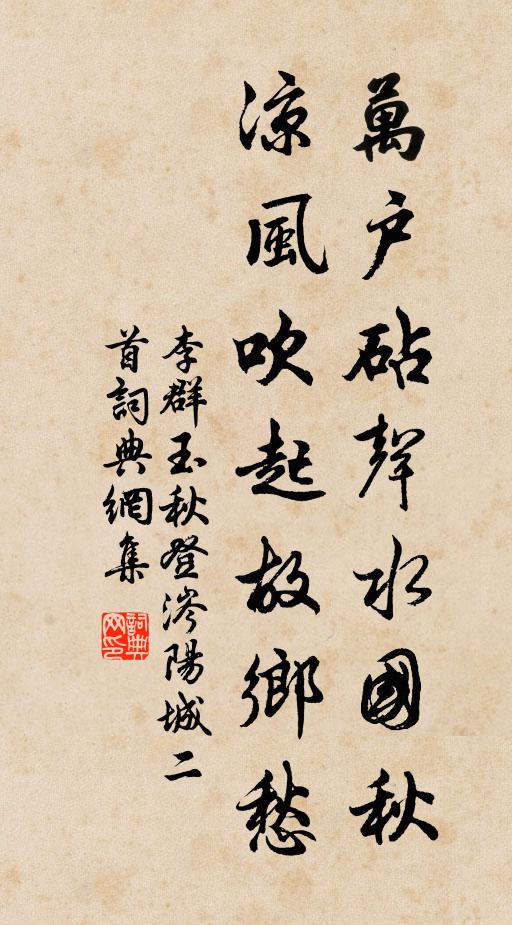 萬户砧聲水國秋
涼風吹起故鄉愁
李群玉秋登涔陽城二
首詞典網集
詞典网印